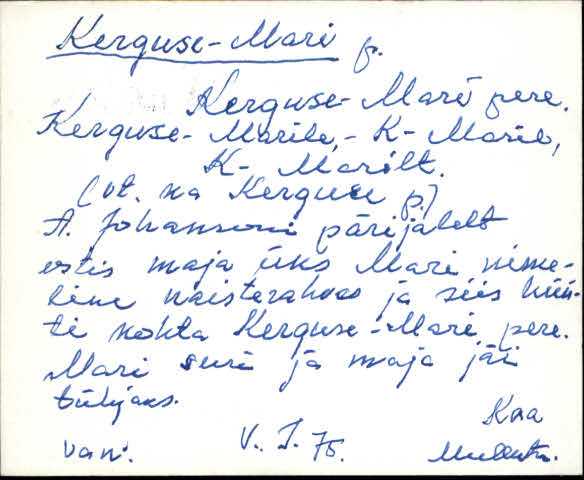 Kerguse-Mari p.
Kerguse-Mari pere.
Kerguse-Marile, - K-Maril,
K- Marilt.
(vt. ka Kerguse p.)
A. Johansoni pärijalelt
ostis maja üks Mari nime-
line naisterahvas ja siis hüü-
ti kohta Kerguse-Mari pere.
Mari suri ja maja jäi
tühjaks.
Kaa
van. V. J. 75.